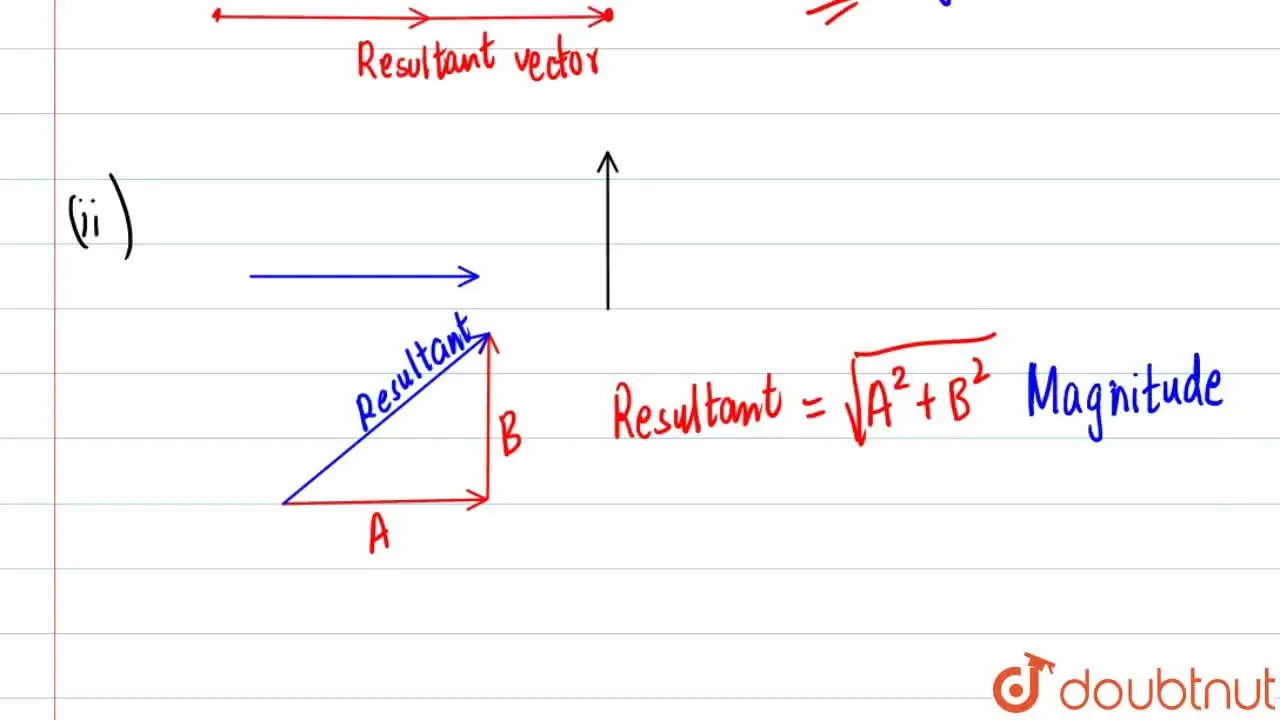 Resultant vector
(ii)
Resultant
B
A
Resultant = √A² + B² Magnitude
doubtnut